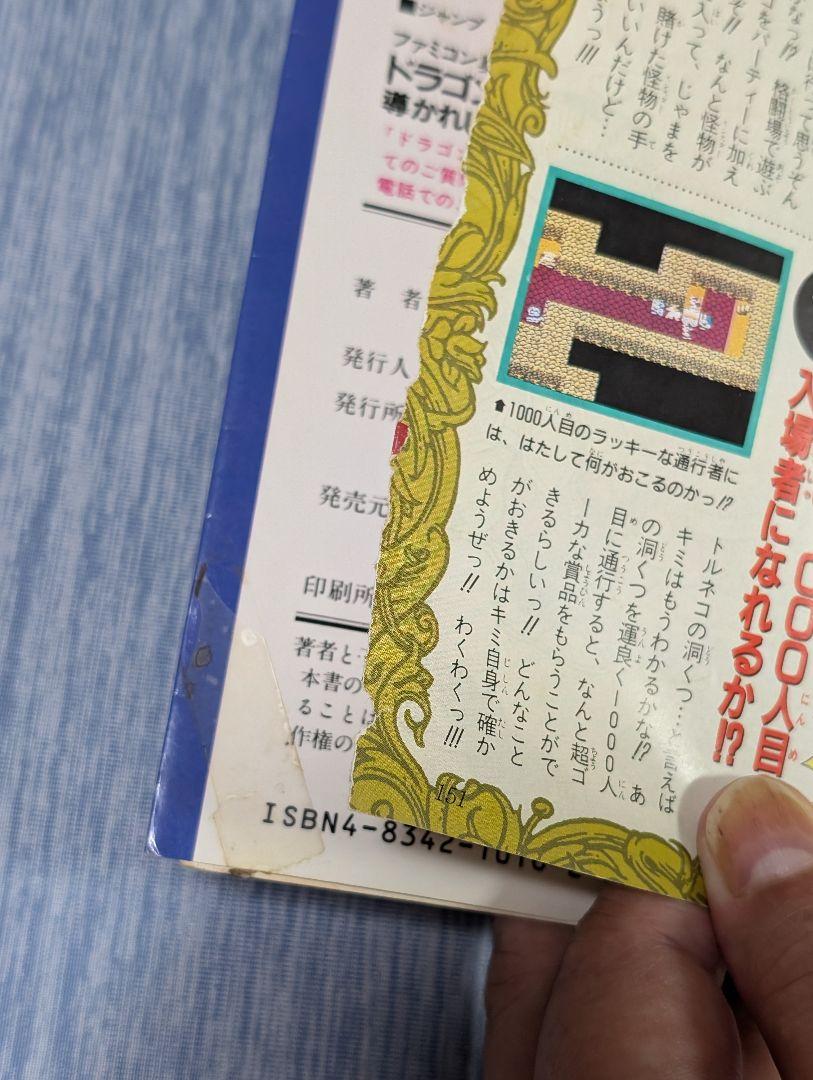 ■ジャンプ
ファミコン
ドラゴン
導かれし
『ドラゴ
てのご質
電話での
著者
発行人
発行所
発売元
印刷所
著者と
本書の
ることは
作権の
ISBN4-8342-1010
て思うぞん
格闘場で遊ぶ
ゴをパーティーに加え
ぞ!! なんと怪物が
入って、じゃまを
賭けた怪物の手
いいんだけど…
うっ!!!
⬆1000人目のラッキーな通行者に
は、はたして何がおこるのかっ!?
000人目
入場者になれるか!?
トルネコの洞くつ…と言えば
キミはもうわかるかな!? あ
の洞くつを運良く1000人
目に通行すると、なんと超ゴ
ーカな賞品をもらうことがで
きるらしいっ!! どんなこと
がおきるかはキミ自身で確か
めようぜっ!! わくわくっ!!!
151